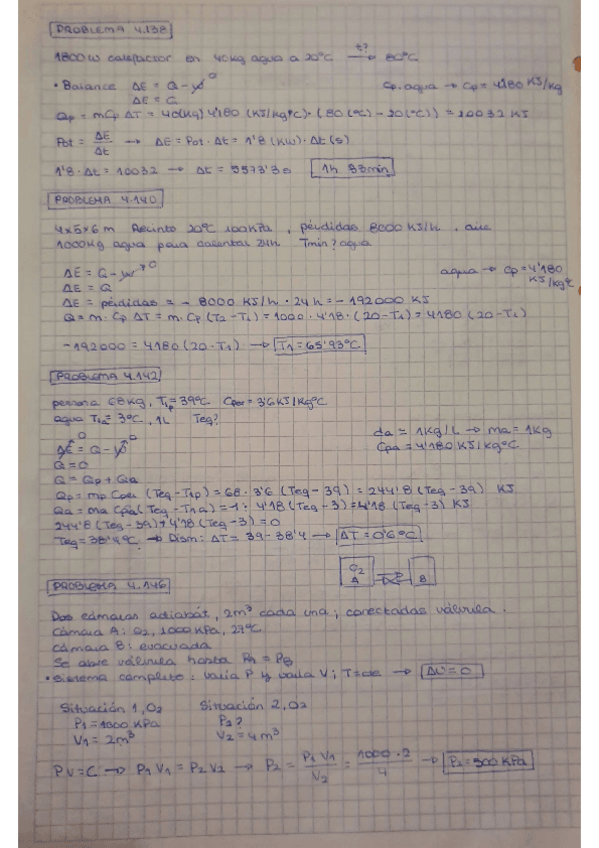 PROBLEMA 4.138
1800W calefactor en 40kg agua a 20°C →t? 80°C
• Balance ΔE = Q - W 0 Cp. agua → Cp = 4'180 KJ/kg
ΔE = Q
Qp = mCp ΔT = 40(kg) 4'180 (KJ/kg°C) · (80(°C) - 20(°C)) = 10032 KJ
Pot = ΔE/Δt → ΔE = Pot · Δt = 1'8 (KW) · Δt (s)
1'8 · Δt = 10032 → Δt = 5573'3s 1h 33min
PROBLEMA 4.140
4x5x6 m Recinto 20°C 100KPa, pérdidas 8000 KJ/h, aire
1000kg agua para calentar 24h Tmin? agua
ΔE = Q - W 0 agua → Cp = 4'180 KJ/kg°C
ΔE = Q
ΔE = pérdidas = - 8000 KJ/h · 24h = - 192000 KJ
Q = m · Cp ΔT = m · Cp (T2 - T1) = 1000 · 4'18 · (20 - T1) = 4180 (20 - T1)
- 192000 = 4180 (20 - T1) → T1 = 65'93°C
PROBLEMA 4.142
persona 68kg, T1p = 39°C Cper = 3'6 KJ/kg°C
agua T1a = 3°C, 1L Teq?
da = 1kg/L → ma = 1kg
ΔE 0 = Q - W 0 Cpa = 4'180 KJ/kg°C
Q = 0
Q = Qp + Qa
Qp = mp Cper (Teq - T1p) = 68 · 3'6 (Teq - 39) = 244'8 (Teq - 39) KJ
Qa = ma Cpa (Teq - T1a) = 1 · 4'18 (Teq - 3) = 4'18 (Teq - 3) KJ
244'8 (Teq - 39) + 4'18 (Teq - 3) = 0
Teq = 38'4°C → Dism: ΔT = 39 - 38'4 → ΔT = 0'6°C
PROBLEMA 4.146
O2
A B
Dos cámaras adiabát, 2m³ cada una; conectadas válvula.
Cámara A: O2, 1000 KPa, 27°C
Cámara B: evacuada
Se abre válvula hasta PA = PB
• Sistema completo: varía P y varía V; T=cte → ΔU = 0
Situación 1, O2 Situación 2, O2
P1 = 1000 KPa P2?
V1 = 2m³ V2 = 4m³
PV = C → P1 V1 = P2 V2 → P2 = P1 V1/V2 = 1000 · 2/4 → P2 = 500 KPa